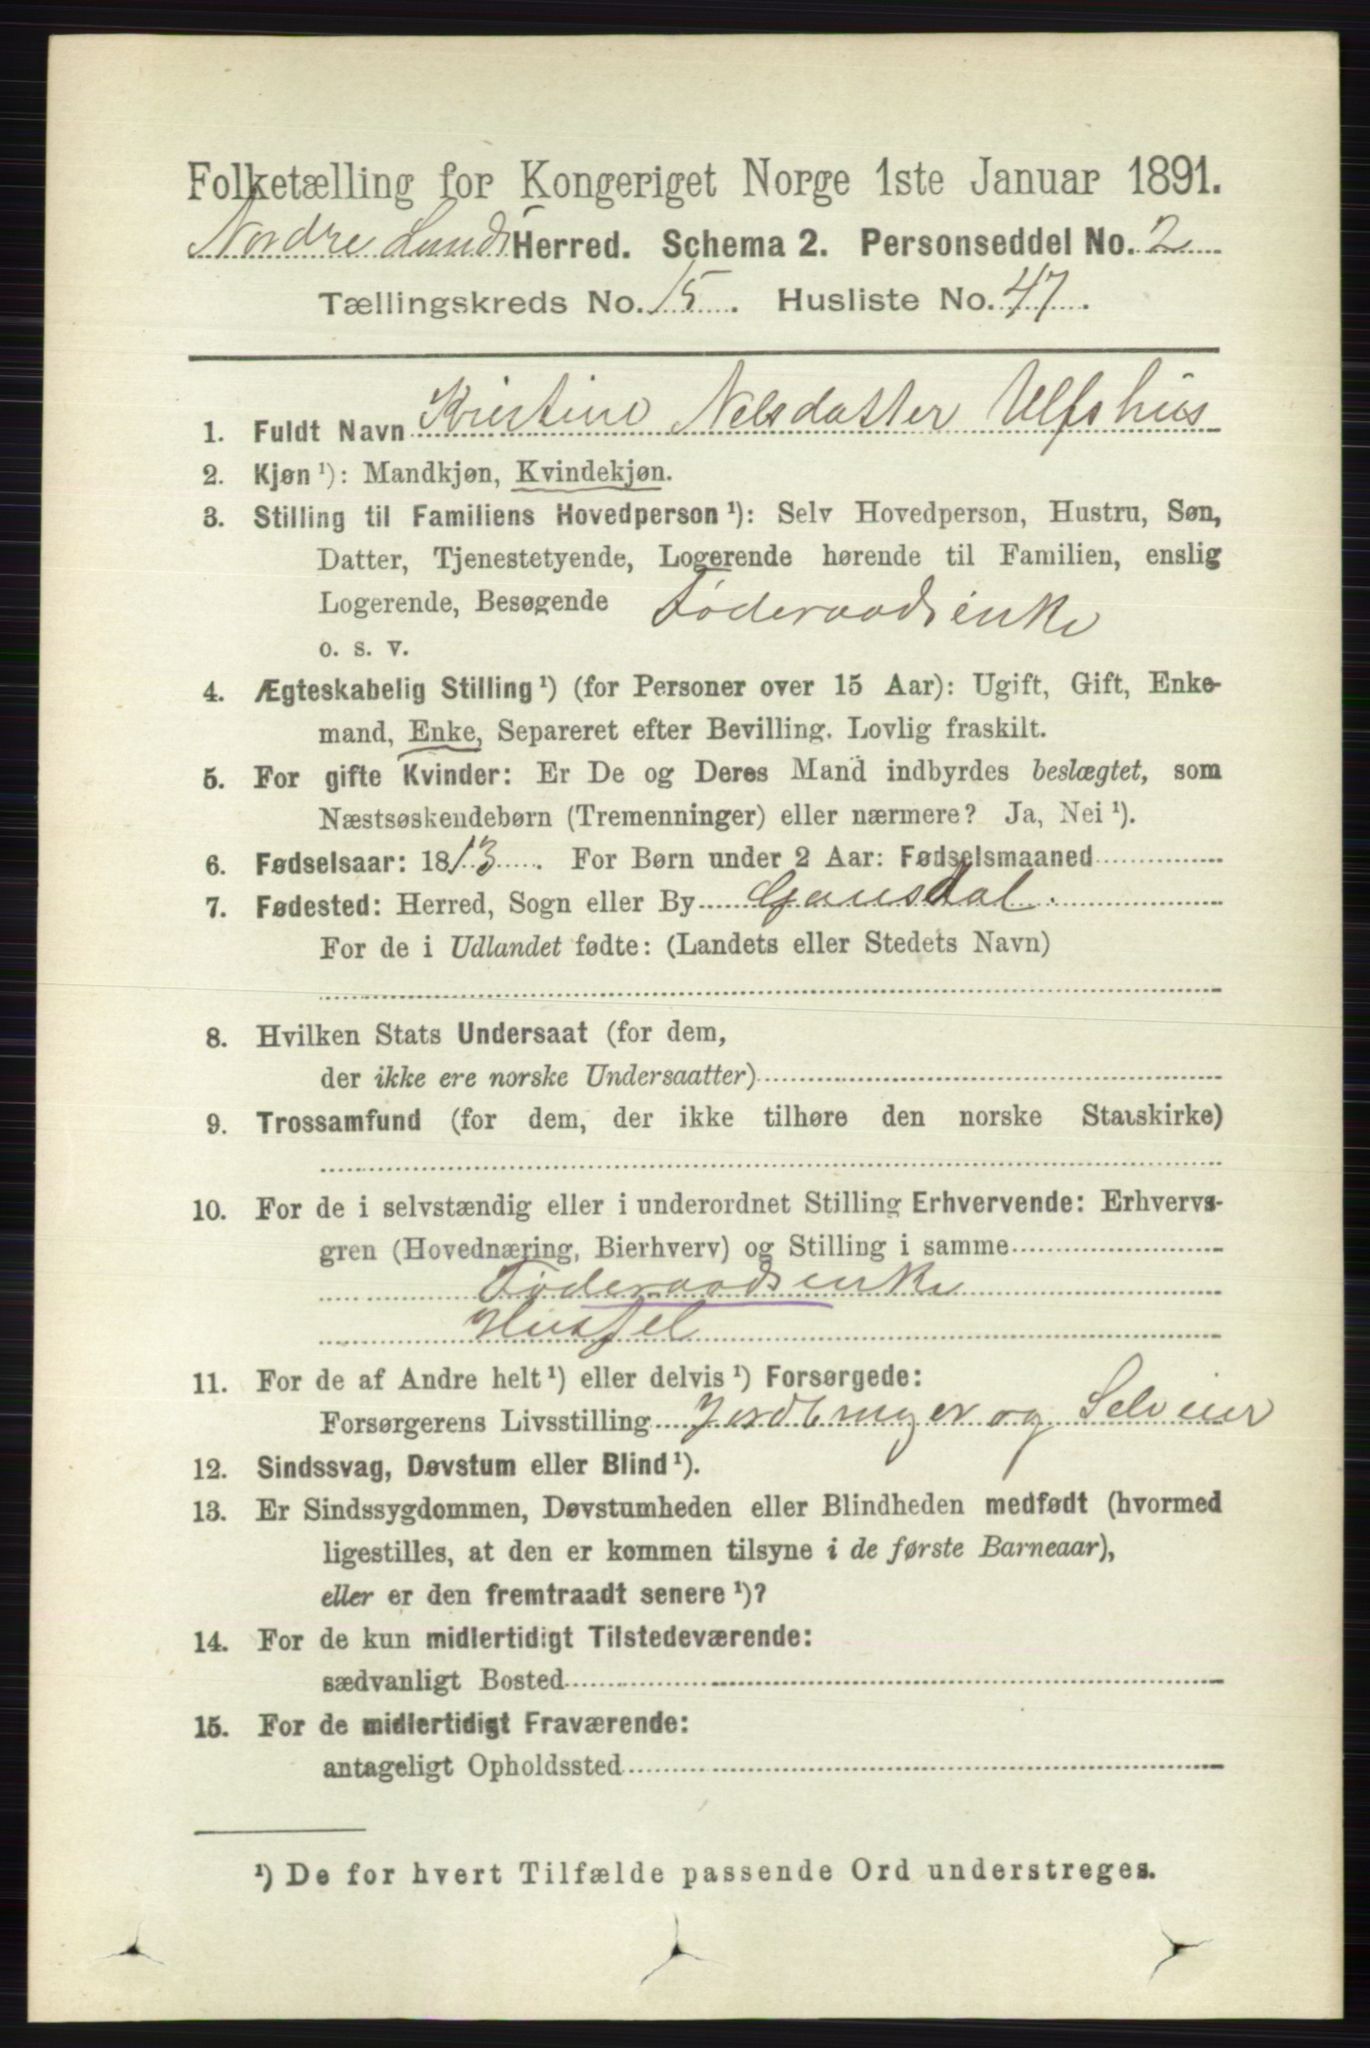 Folketælling for Kongeriget Norge 1ste Januar 1891.
Nordre Land Herred. Schema 2. Personseddel No. 2
Tællingskreds No. 15. Husliste No. 47.
1. Fuldt Navn Kristine Nelsdatter Ulfshus
2. Kjøn ¹): Mandkjøn, Kvindekjøn.
3. Stilling til Familiens Hovedperson ¹): Selv Hovedperson, Hustru, Søn,
Datter, Tjenestetyende, Logerende hørende til Familien, enslig
Logerende, Besøgende Føderaadsenke
o. s. v.
4. Ægteskabelig Stilling ¹) (for Personer over 15 Aar): Ugift, Gift, Enke-
mand, Enke, Separeret efter Bevilling. Lovlig fraskilt.
5. For gifte Kvinder: Er De og Deres Mand indbyrdes beslægtet, som
Næstsøskendebørn (Tremenninger) eller nærmere? Ja, Nei ¹).
6. Fødselsaar: 1813. For Børn under 2 Aar: Fødselsmaaned
7. Fødested: Herred, Sogn eller By Gausdal.
For de i Udlandet fødte: (Landets eller Stedets Navn)
8. Hvilken Stats Undersaat (for dem,
der ikke ere norske Undersaatter)
9. Trossamfund (for dem, der ikke tilhøre den norske Statskirke)
10. For de i selvstændig eller i underordnet Stilling Erhvervende: Erhvervs-
gren (Hovednæring, Bierhverv) og Stilling i samme
Føderaadsenke
Husstel
11. For de af Andre helt ¹) eller delvis ¹) Forsørgede:
Forsørgerens Livsstilling Jordbruger og Selveier
12. Sindssvag, Døvstum eller Blind ¹).
13. Er Sindssygdommen, Døvstumheden eller Blindheden medfødt (hvormed
ligestilles, at den er kommen tilsyne i de første Barneaar),
eller er den fremtraadt senere ¹)?
14. For de kun midlertidigt Tilstedeværende:
sædvanligt Bosted
15. For de midlertidigt Fraværende:
antageligt Opholdssted
¹) De for hvert Tilfælde passende Ord understreges.